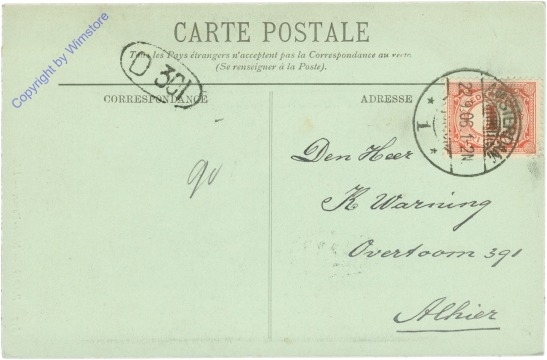 CARTE POSTALE
Tous les Pays étrangers n'acceptent pas la Correspondance au recto.
(Se renseigner à la Poste).
Copyright by Wimstore
D 301
CORRESPONDANCE
ADRESSE
AMSTERDAM
22.9.06 1-2N
1
90
Den Heer
K Warning
Overtoom 391
Alhier